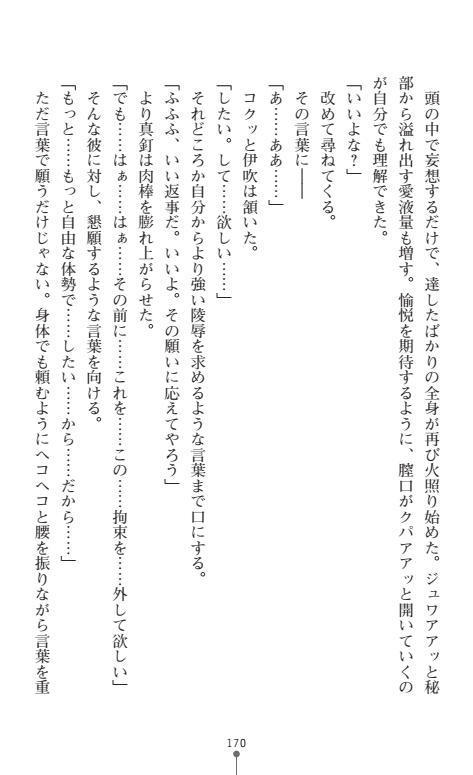 頭の中で妄想するだけで、達したばかりの全身が再び火照り始めた。ジュワアアッと秘
部から溢れ出す愛液量も増す。愉悦を期待するように、膣口がクパアアッと開いていくの
が自分でも理解できた。
「いいよな？」
　改めて尋ねてくる。
　その言葉に――
「あ……ああ……」
　コクッと伊吹は頷いた。
「したい。して……欲しい……」
　それどころか自分からより強い陵辱を求めるような言葉まで口にする。
「ふふふ、いい返事だ。いいよ。その願いに応えてやろう」
　より真釘は肉棒を膨れ上がらせた。
「でも……はぁ……はぁ……その前に……これを……この……拘束を……外して欲しい」
　そんな彼に対し、懇願するような言葉を向ける。
「もっと……もっと自由な体勢で……したい……から……だから……」
　ただ言葉で願うだけじゃない。身体でも頼むようにヘコヘコと腰を振りながら言葉を重
170